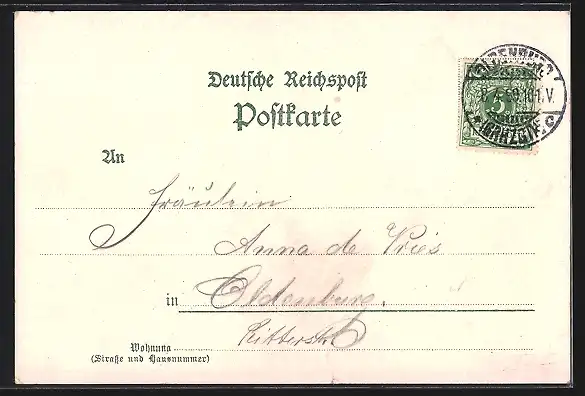 Deutsche Reichspost
Postkarte
An
Fräulein
Anna de Vries
in Oldenburg.
Ritterstr.
Wohnung
(Straße und Hausnummer)
OLDENBURG
5